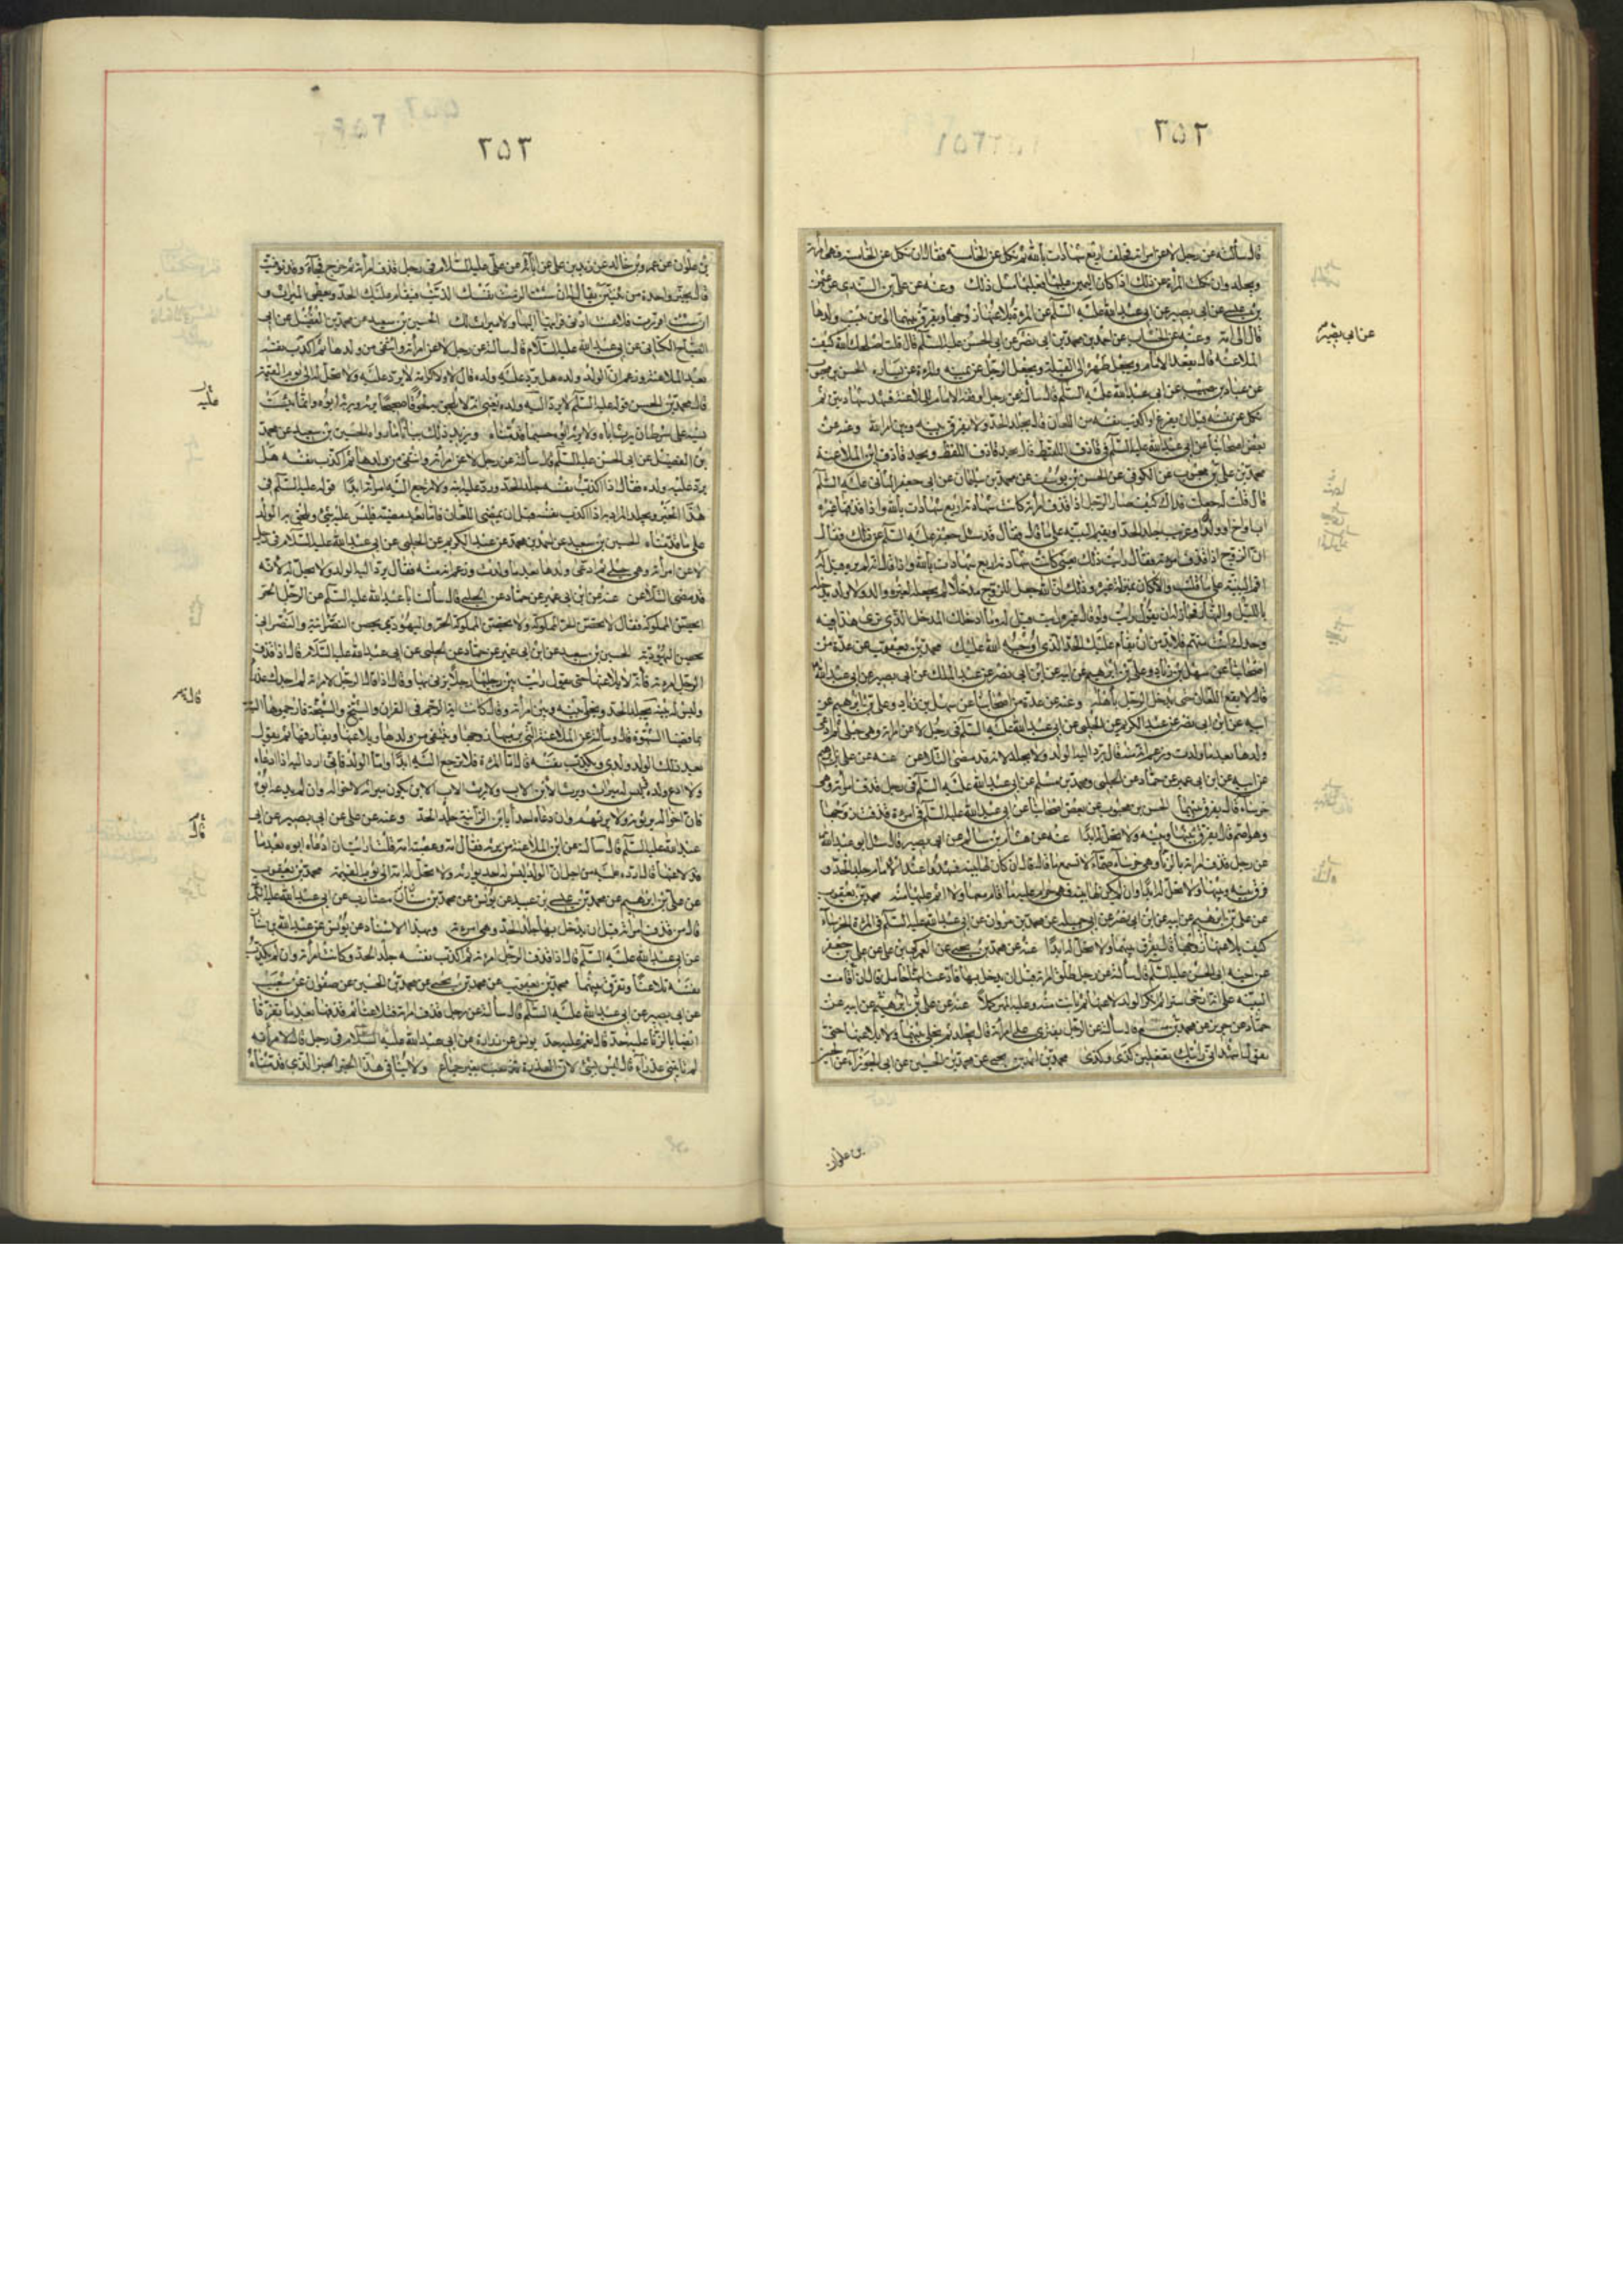 ٢٥٢
قال سألته عن رجل لاعن امراته فحلف اربع شهادات بالله ثم نكل عن الخامسة فقال ان نكل عن الخامسة فهى امرأته
ويجلد وان نكلت المرأة عن ذلك اذا كان اليمين عليها فعليها مثل ذلك وعنه عن على بن السندى عن عثمن
بن عيسى عن ابى بصير عن ابى عبد الله عليه السلم عن المرءة يلاعنها زوجها ويفرق بينهما الى من ينسب ولدها
عن ابى بصير
قال الى امه وعنه عن احمد بن محمد بن ابى نصر عن ابى الحسن عليه السلم قال قلت اصلحك الله كيف
الملاعنة قال يقعد الامام ويجعل ظهره الى القبلة ويجعل الرجل عن يمينه والمرءة عن يساره الحسن بن محبوب
عن عباد بن صهيب عن ابى عبد الله عليه السلم قال سألته عن رجل اوقفه الامام للملاعنة فشهد شهادتين ثم
نكل عن نفسه قبل ان يفرغ او اكذب نفسه من اللعان قال يجلد الحد ولا يفرق بينه وبين امرأته وعنه عن
بعض اصحابنا عن ابى عبد الله عليه السلم فى قاذف اللقيط قال يحد قاذف اللقيط ويحد قاذف ابن الملاعنة
محمد بن على بن محبوب عن الكوفى عن الحسن بن يوسف عن محمد بن سليمان عن ابى جعفر الثانى عليه السلم
قال قلت له جعلت فداك كيف صار الرجل اذا قذف امرأته كانت شهادته اربع شهادات بالله واذا قذفها غيره
اب او اخ او ولد او غريب جلد الحد او يقيم البينه على ما قال فقال قد سئل جعفر عليه السلم عن ذلك فقال
ان الزوج اذا قذف امرءته فقال رايت ذلك بعينى كانت شهادته اربع شهادات بالله واذا قال انه لم يره قيل له
اقم البينة على ما قلت والا كان بمنزلة غيره وذلك ان الله جعل للزوج مدخلا لم يجعله لغيره والد ولا ولد يدخله
بالليل والنهار فجاز له ان يقول رايت ولو قال غيره رايت قيل له وما ادخلك المدخل الذى ترى هذا فيه
وحدك انت متهم فلا بد من ان يقام عليك الحد الذى اوجبه الله عليك محمد بن يعقوب عن عدة من
اصحابنا عن سهل بن زياد وعلى بن ابرهيم عن ابيه عن ابن ابى نصر عن عبد الملك عن ابى بصير عن ابى عبد الله
قال لا يقع اللعان حتى يدخل الرجل باهله وعنه عن عدة من اصحابنا عن سهل بن زياد وعلى بن ابرهيم عن
ابيه عن ابن ابى نصر عن عبد الكريم عن الحلبى عن ابى عبد الله عليه السلم فى رجل لاعن امرأته وهى حبلى ثم ادعى
ولدها بعد ما ولدت وزعم انه منه قال يرد اليه الولد ولا يجلد لانه قد مضى التلاعن عنه عن على بن ابرهيم
عن ابيه عن ابن ابى عمير عن حماد عن الحلبى ومحمد بن مسلم عن ابى عبد الله عليه السلم فى رجل قذف امرأته وهى
خرساء قال يفرق بينهما الحسن بن محبوب عن بعض اصحابنا عن ابى عبد الله عليه السلم فى امرءة قذفت زوجها
وهو اصم قال يفرق بينها وبينه ولا تحل له ابدا عنه عن هشام بن سالم عن ابى بصير قال سئل ابو عبد الله
عن رجل قذف امرأته بالزنا وهى خرساء صماء لا تسمع ما قال قال ان كان لها بينة فشهدوا عند الامام جلد الحد و
فرق بينه وبينها ولا تحل له ابدا وان لم يكن لها بينة فهى حرام عليه ما اقام معها ولا اثم عليها منه محمد بن يعقوب
عن على بن ابرهيم عن ابيه عن ابن ابى نصر عن ابى جميله عن محمد بن مروان عن ابى عبد الله عليه السلم فى المرءة الخرساء
كيف يلاعنها زوجها قال يفرق بينهما ولا تحل له ابدا عنه عن محمد بن يحيى عن العمركى بن على عن على بن جعفر
عن اخيه ابى الحسن عليه السلم قال سألته عن رجل طلق امراته قبل ان يدخل بها فادعت انها حامل قال ان اقامت
البينة على انه ارخى سترا ثم انكر الولد لاعنها ثم بانت منه وعليه المهر كملا عنه عن على بن ابرهيم عن ابيه عن
حماد عن حريز عن محمد بن مسلم قال سألته عن الرجل يفترى على امرأته قال يجلد ثم يخلى بينهما ولا يلاعنها حتى
يقول اشهد انى رايتك تفعلين كذى وكذى محمد بن احمد بن يحيى عن محمد بن الحسين عن ابى الجوزاء عن الحسين
بن علوان
٢٥٣
بن علوان عن عمرو بن خالد عن زيد بن على عن ابائه عن على عليه السلام فى رجل قذف امرأته ثم خرج فجاء وقد توفيت
قال يخير واحدة من ثنتين يقال له ان شئت الزمت نفسك الذنب فيقام عليك الحد وتعطى الميراث و
ان شئت اقررت فلاعنت ادنى قرابتها اليها ولا ميراث لك الحسين بن سعيد عن محمد بن الفضيل عن ابى
الصباح الكنانى عن ابى عبد الله عليه السلام قال سألته عن رجل لاعن امرأته وانتفى من ولدها ثم اكذب نفسه
بعد الملاعنة وزعم ان الولد ولده هل يرد عليه ولده قال لا ولا كرامة لا يرد عليه ولا تحل له الى يوم القيمة
قال محمد بن الحسن قوله عليه السلم لا يرد اليه ولده يعنى انه لا يلحق به لحوقا صحيحا يرثه ويرثه ابوه وانما يثبت
نسبه على شرط ان يرث اباه ولا يرثه ابوه حسبما قدمناه ويزيد ذلك بيانا ما رواه الحسين بن سعيد عن محمد
بن الفضيل عن ابى الحسن عليه السلم قال سألته عن رجل لاعن امرأته وانتفى من ولدها ثم اكذب نفسه هل
يرد عليه ولده فقال اذا اكذب نفسه جلد الحد ورد عليه ابنه ولا ترجع اليه امرأته ابدا قوله عليه السلم فى
هذا الخبر ويجلد المراد به اذا اكذب نفسه قبل ان يمضى اللعان فاما بعد مضيه فليس عليه شئ ويلحق به الولد
على ما قدمناه الحسين بن سعيد عن احمد بن محمد عن عبد الكريم عن الحلبى عن ابى عبد الله عليه السلام فى رجل
لاعن امرأته وهى حبلى ثم ادعى ولدها بعد ما ولدت وزعم انه منه فقال يرد اليه الولد ولا تحل له لانه
قد مضى التلاعن عنه عن ابن ابى عمير عن حماد عن الحلبى قال سألت ابا عبد الله عليه السلم عن الرجل الحر
يحصن المملوكة فقال لا يحصن الحر المملوكة ولا يحصن المملوكة الحر واليهودى يحصن النصرانية والنصرانى
يحصن اليهودية الحسين بن سعيد عن ابن ابى عمير عن حماد عن الحلبى عن ابى عبد الله عليه السلام قال اذا قذف
الرجل امرءته فانه لا يلاعنها حتى يقول رايت بين رجليها رجلا يزنى بها وقال اذا قال الرجل لامرأته لم اجدك عذراء
قال
وليس له بينة يجلد الحد ويخلى بينه وبين امرأته وقال كانت اية الرجم فى القران والشيخ والشيخة فارجموهما البتة
بما قضيا الشهوة قال وسألته عن الملاعنة التى يرميها زوجها وينتفى من ولدها ويلاعنها ويفارقها ثم يقول
بعد ذلك الولد ولدى ويكذب نفسه قال اما المرءة فلا ترجع اليه ابدا واما الولد فانى ارده اليه اذا ادعاه
ولا ادع ولده ليس له ميراث ويرث الابن الاب ولا يرث الاب الابن يكون ميراثه لاخواله وان لم يدعه ابوه
فان اخواله يرثونه ولا يرثهم وان دعاه احد يابن الزانية جلد الحد وعنه عن على عن ابى بصير عن ابى
عبد الله عليه السلم قال سألته عن ابن الملاعنة من يرثه فقال امه وعصبة امه قلت ارايت ان ادعاه ابوه بعد ما
قد لاعنها قال ارده عليه من اجل ان الولد ليس له احد يوارثه ولا تحل له امه الى يوم القيمة محمد بن يعقوب
عن على بن ابرهيم عن محمد بن عيسى بن عبيد عن يونس عن محمد بن سنان مضارب عن ابى عبد الله عليه السلم
قال من قذف امرأته قبل ان يدخل بها جلد الحد وهى امرءته وبهذا الاسناد عن يونس عن عبد الله بن سنان
عن ابى عبد الله عليه السلم قال اذا قذف الرجل امرءته ثم اكذب نفسه جلد الحد وكانت امرأته وان لم يكذب
نفسه تلاعنا وتفرق بينهما محمد بن يعقوب عن محمد بن يحيى عن محمد بن الحسين عن صفوان عن شعيب
عن ابى بصير عن ابى عبد الله عليه السلم قال سألته عن رجل قذف امرأته فتلاعنا ثم قذفها بعد ما تفرقا
ايضا بالزنا عليه حد قال نعم عليه حد يونس عن زرارة عن ابى عبد الله عليه السلام فى رجل قال لامرأته
لم تاتنى عذراء قال ليس بشئ لان العذرة تذهب بغير جماع ولا ينافى هذا الخبر الخبر الذى قدمناه